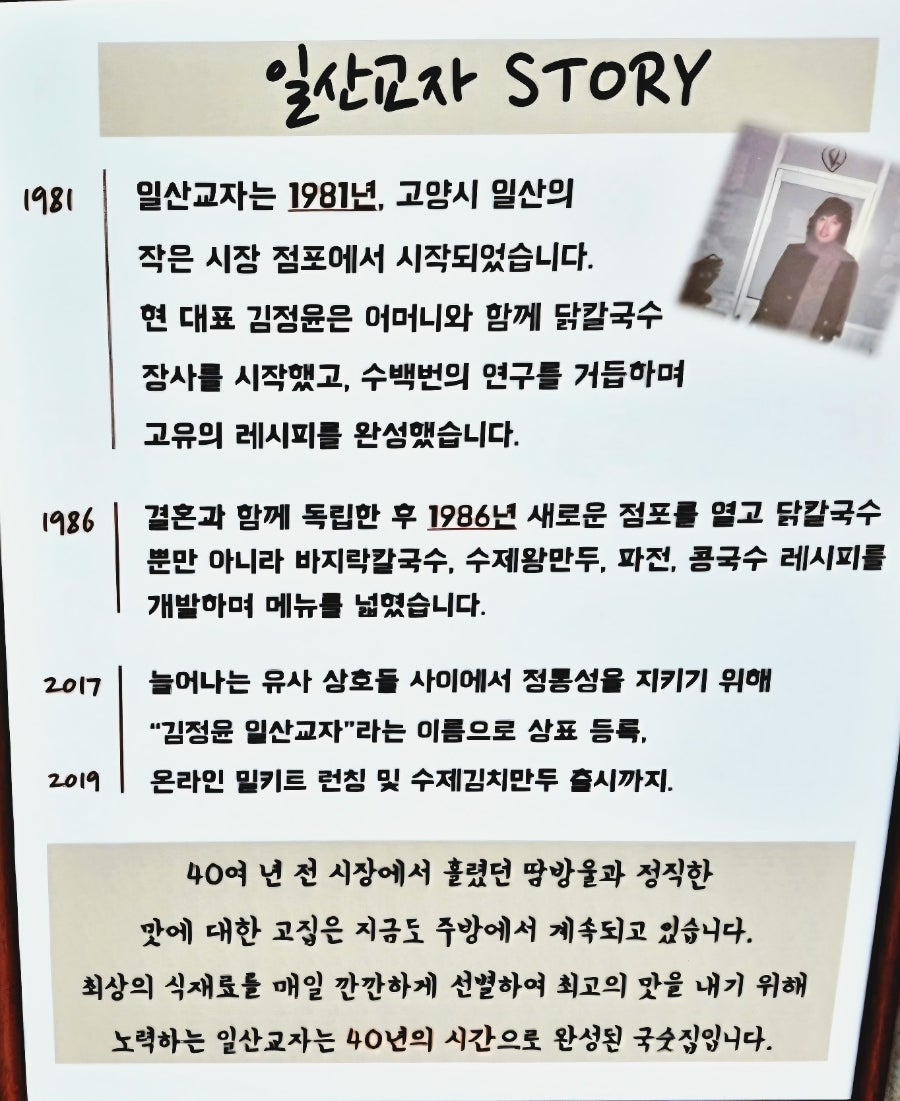 일산교자 STORY
1981
일산교자는 1981년, 고양시 일산의
작은 시장 점포에서 시작되었습니다.
현 대표 김정윤은 어머니와 함께 닭칼국수
장사를 시작했고, 수백번의 연구를 거듭하며
고유의 레시피를 완성했습니다.
1986
결혼과 함께 독립한 후 1986년 새로운 점포를 열고 닭칼국수
뿐만 아니라 바지락칼국수, 수제왕만두, 파전, 콩국수 레시피를
개발하며 메뉴를 넓혔습니다.
2017
늘어나는 유사 상호들 사이에서 정통성을 지키기 위해
“김정윤 일산교자”라는 이름으로 상표 등록,
2019
온라인 밀키트 런칭 및 수제김치만두 출시까지.
40여 년 전 시장에서 흘렸던 땀방울과 정직한
맛에 대한 고집은 지금도 주방에서 계속되고 있습니다.
최상의 식재료를 매일 깐깐하게 선별하여 최고의 맛을 내기 위해
노력하는 일산교자는 40년의 시간으로 완성된 국숫집입니다.